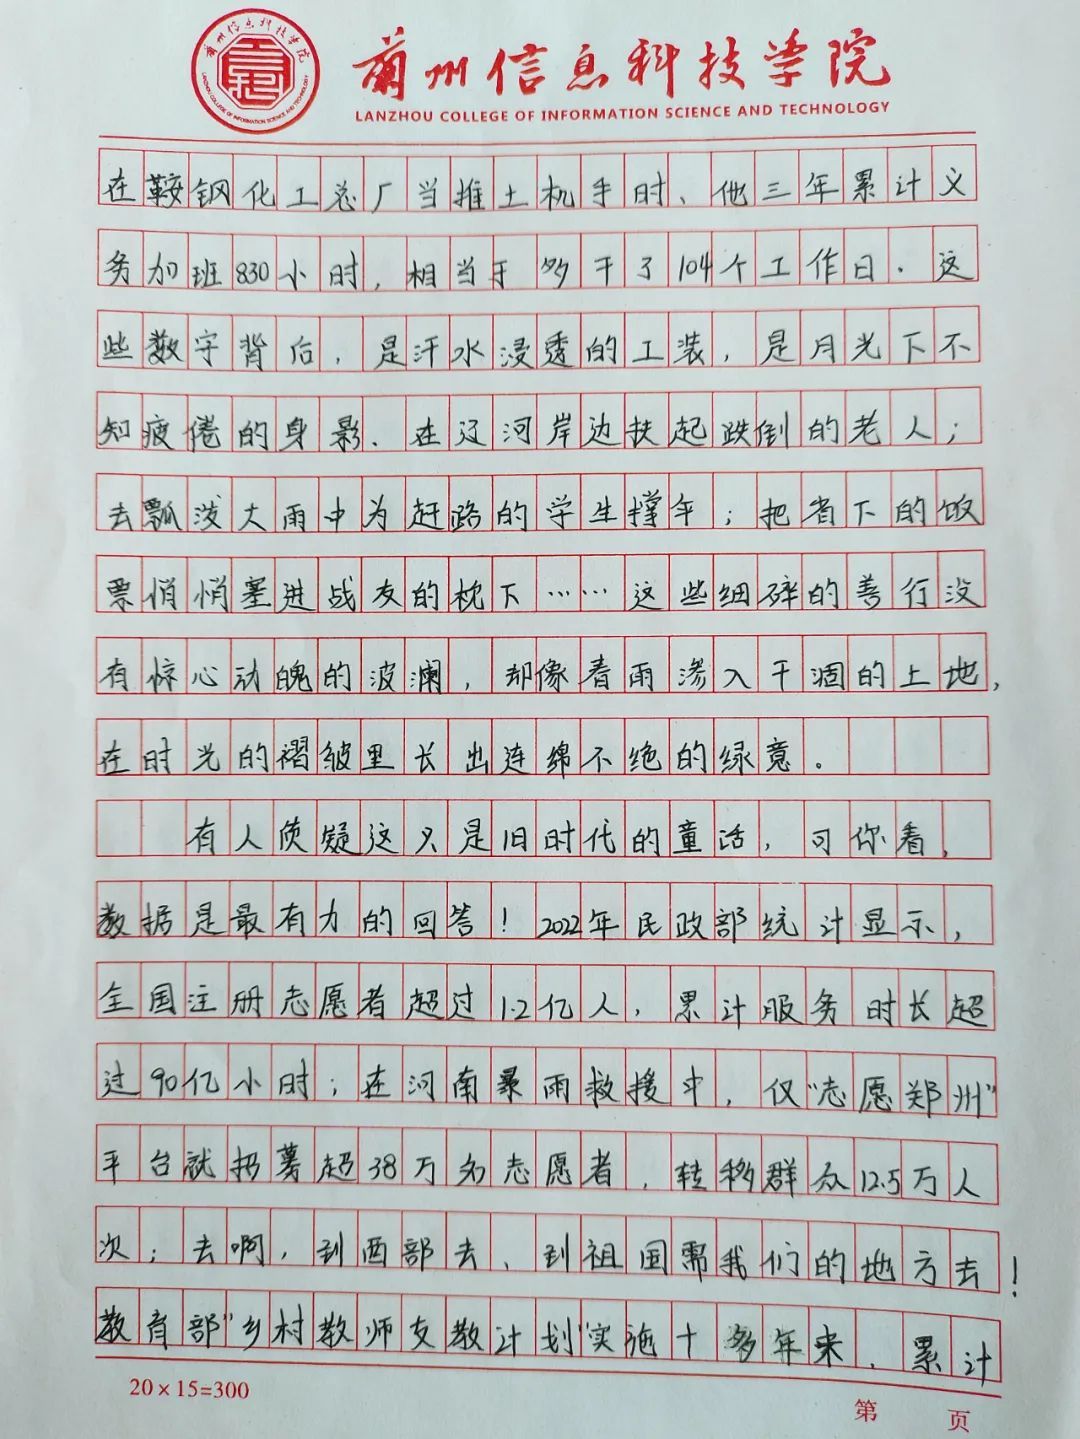 兰州信息科技学院
LANZHOU COLLEGE OF INFORMATION SCIENCE AND TECHNOLOGY
在鞍钢化工总厂当推土机手时、他三年累计义
务加班830小时，相当于多干了104个工作日．这
些数字背后，是汗水浸透的工装，是月光下不
知疲倦的身影．在辽河岸边扶起跌倒的老人；
去瓢泼大雨中为赶路的学生撑伞；把省下的饭
票悄悄塞进战友的枕下……这些细碎的善行没
有惊心动魄的波澜，却像春雨渗入干涸的土地，
在时光的褶皱里长出连绵不绝的绿意．
有人质疑这只是旧时代的童话，可你看，
数据是最有力的回答！2022年民政部统计显示，
全国注册志愿者超过1.2亿人，累计服务时长超
过90亿小时；在河南暴雨救援中，仅“志愿郑州”
平台就招募超38万名志愿者，转移群众12.5万人
次；去啊，到西部去、到祖国需我们的地方去！
教育部“乡村教师支教计划”实施十多年来，累计
20×15=300
第 页